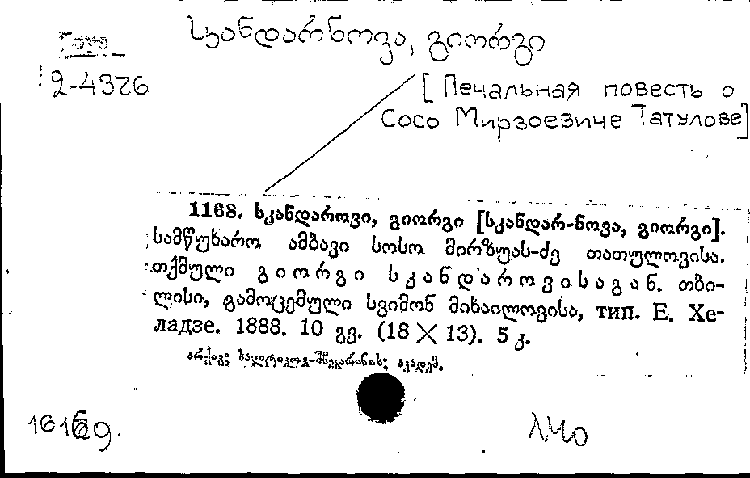 სკანდარნოვა, გიორგი
2-4376
[Печальная повесть о
Сосо Мирзоевиче Татулове]
1168. სკანდაროვი, გიორგი [სკანდარ-ნოვა, გიორგი].
სამწუხარო ამბავი სოსო მირზუას-ძე თათულოვისა.
თქმული გიორგი სკანდაროვისაგან. თბი-
ლისი, გამოცემული სვიმონ მიხაილოვისა, тип. Е. Хе-
ладзе. 1888. 10 გვ. (18 X 13). 5 კ.